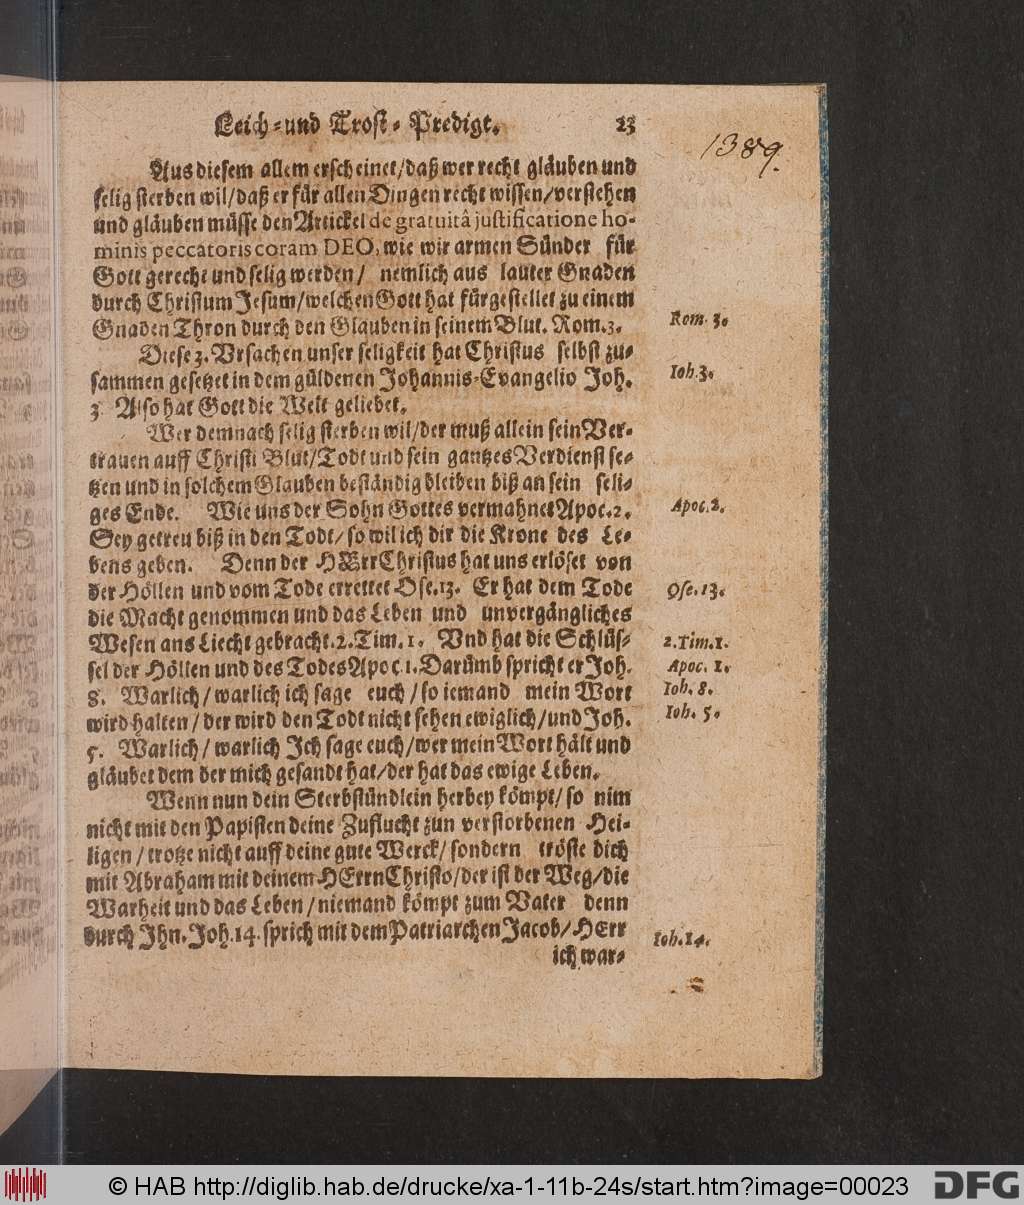 Leich-und Trost-Predigt. 23
1389.
Aus diesem allem erscheinet/daß wer recht gläuben und
selig sterben wil/daß er für allen Dingen recht wissen/verstehen
und gläuben müsse den Artickel de gratuitâ justificatione ho-
minis peccatoris coram DEO, wie wir armen Sünder für
Gott gerecht und selig werden/ nemlich aus lauter Gnaden
durch Christum Jesum/welchen Gott hat fürgestellet zu einem
Gnaden Thron durch den Glauben in seinem Blut. Rom.3.
Rom. 3.
Diese 3. Vrsachen unser seligkeit hat Christus selbst zu-
sammen gesetzet in dem güldenen Johannis-Evangelio Joh.
Ioh.3.
3 Also hat Gott die Welt geliebet.
Wer demnach selig sterben wil/der muß allein sein Ver-
trauen auff Christi Blut/Todt und sein gantzes Verdienst se-
tzen und in solchem Glauben beständig bleiben biß an sein seli-
ges Ende. Wie uns der Sohn Gottes vermahnet Apoc.2.
Apoc.2.
Sey getreu biß in den Todt/so wil ich dir die Krone des Le-
bens geben. Denn der HErr Christus hat uns erlöset von
der Höllen und vom Tode errettet Ose.13. Er hat dem Tode
Ose.13.
die Macht genommen und das Leben und unvergängliches
Wesen ans Liecht gebracht.2.Tim.1. Vnd hat die Schlüs-
2.Tim.1.
sel der Höllen und des Todes Apoc.1. Darümb spricht er Joh.
Apoc. 1.
8. Warlich/warlich ich sage euch/so iemand mein Wort
Ioh. 8.
wird halten/der wird den Todt nicht sehen ewiglich/und Joh.
Ioh. 5.
5. Warlich/warlich Ich sage euch/wer mein Wort hält und
gläubet dem der mich gesandt hat/der hat das ewige Leben.
Wenn nun dein Sterbstündlein herbey kömpt/so nim
nicht mit den Papisten deine Zuflucht zun verstorbenen Hei-
ligen/trotze nicht auff deine gute Werck/sondern tröste dich
mit Abraham mit deinem HErrn Christo/der ist der Weg/die
Warheit und das Leben/niemand kömpt zum Vater denn
durch Ihn. Joh.14. sprich mit dem Patriarchen Jacob/HErr
Ioh.14.
ich war-
© HAB http://diglib.hab.de/drucke/xa-1-11b-24s/start.htm?image=00023
DFG